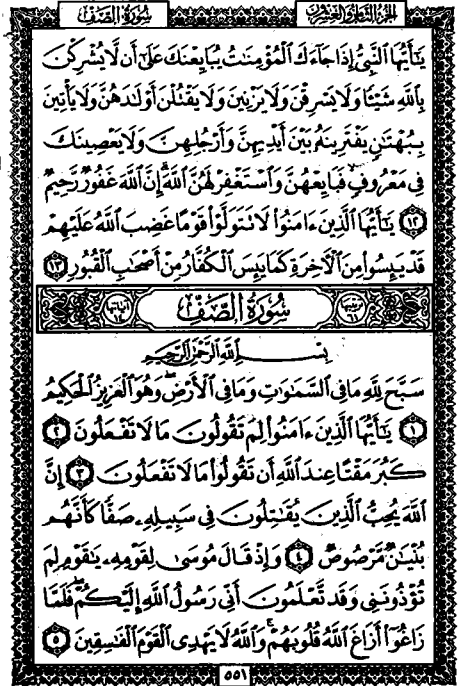 سُورَةُ الصَّفِّ
الجزء الثامن والعشرون
يَٰٓأَيُّهَا ٱلنَّبِىُّ إِذَا جَآءَكَ ٱلْمُؤْمِنَٰتُ يُبَايِعْنَكَ عَلَىٰٓ أَن لَّا يُشْرِكْنَ
بِٱللَّهِ شَيْـًٔا وَلَا يَسْرِقْنَ وَلَا يَزْنِينَ وَلَا يَقْتُلْنَ أَوْلَٰدَهُنَّ وَلَا يَأْتِينَ
بِبُهْتَٰنٍ يَفْتَرِينَهُۥ بَيْنَ أَيْدِيهِنَّ وَأَرْجُلِهِنَّ وَلَا يَعْصِينَكَ
فِى مَعْرُوفٍ فَبَايِعْهُنَّ وَٱسْتَغْفِرْ لَهُنَّ ٱللَّهَ إِنَّ ٱللَّهَ غَفُورٌ رَّحِيمٌ
١٢ يَٰٓأَيُّهَا ٱلَّذِينَ ءَامَنُوا۟ لَا تَتَوَلَّوْا۟ قَوْمًا غَضِبَ ٱللَّهُ عَلَيْهِمْ
قَدْ يَئِسُوا۟ مِنَ ٱلْءَاخِرَةِ كَمَا يَئِسَ ٱلْكُفَّارُ مِنْ أَصْحَٰبِ ٱلْقُبُورِ ١٣
ترتيبها ٦١ سُورَةُ الصَّفِّ آياتها ١٤
بِسْمِ ٱللَّهِ ٱلرَّحْمَٰنِ ٱلرَّحِيمِ
سَبَّحَ لِلَّهِ مَا فِى ٱلسَّمَٰوَٰتِ وَمَا فِى ٱلْأَرْضِ ۖ وَهُوَ ٱلْعَزِيزُ ٱلْحَكِيمُ
١ يَٰٓأَيُّهَا ٱلَّذِينَ ءَامَنُوا۟ لِمَ تَقُولُونَ مَا لَا تَفْعَلُونَ ٢
كَبُرَ مَقْتًا عِندَ ٱللَّهِ أَن تَقُولُوا۟ مَا لَا تَفْعَلُونَ ٣ إِنَّ
ٱللَّهَ يُحِبُّ ٱلَّذِينَ يُقَٰتِلُونَ فِى سَبِيلِهِۦ صَفًّا كَأَنَّهُم
بُنْيَٰنٌ مَّرْصُوصٌ ٤ وَإِذْ قَالَ مُوسَىٰ لِقَوْمِهِۦ يَٰقَوْمِ لِمَ
تُؤْذُونَنِى وَقَد تَّعْلَمُونَ أَنِّى رَسُولُ ٱللَّهِ إِلَيْكُمْ ۖ فَلَمَّا
زَاغُوٓا۟ أَزَاغَ ٱللَّهُ قُلُوبَهُمْ ۚ وَٱللَّهُ لَا يَهْدِى ٱلْقَوْمَ ٱلْفَٰسِقِينَ ٥
٥٥١